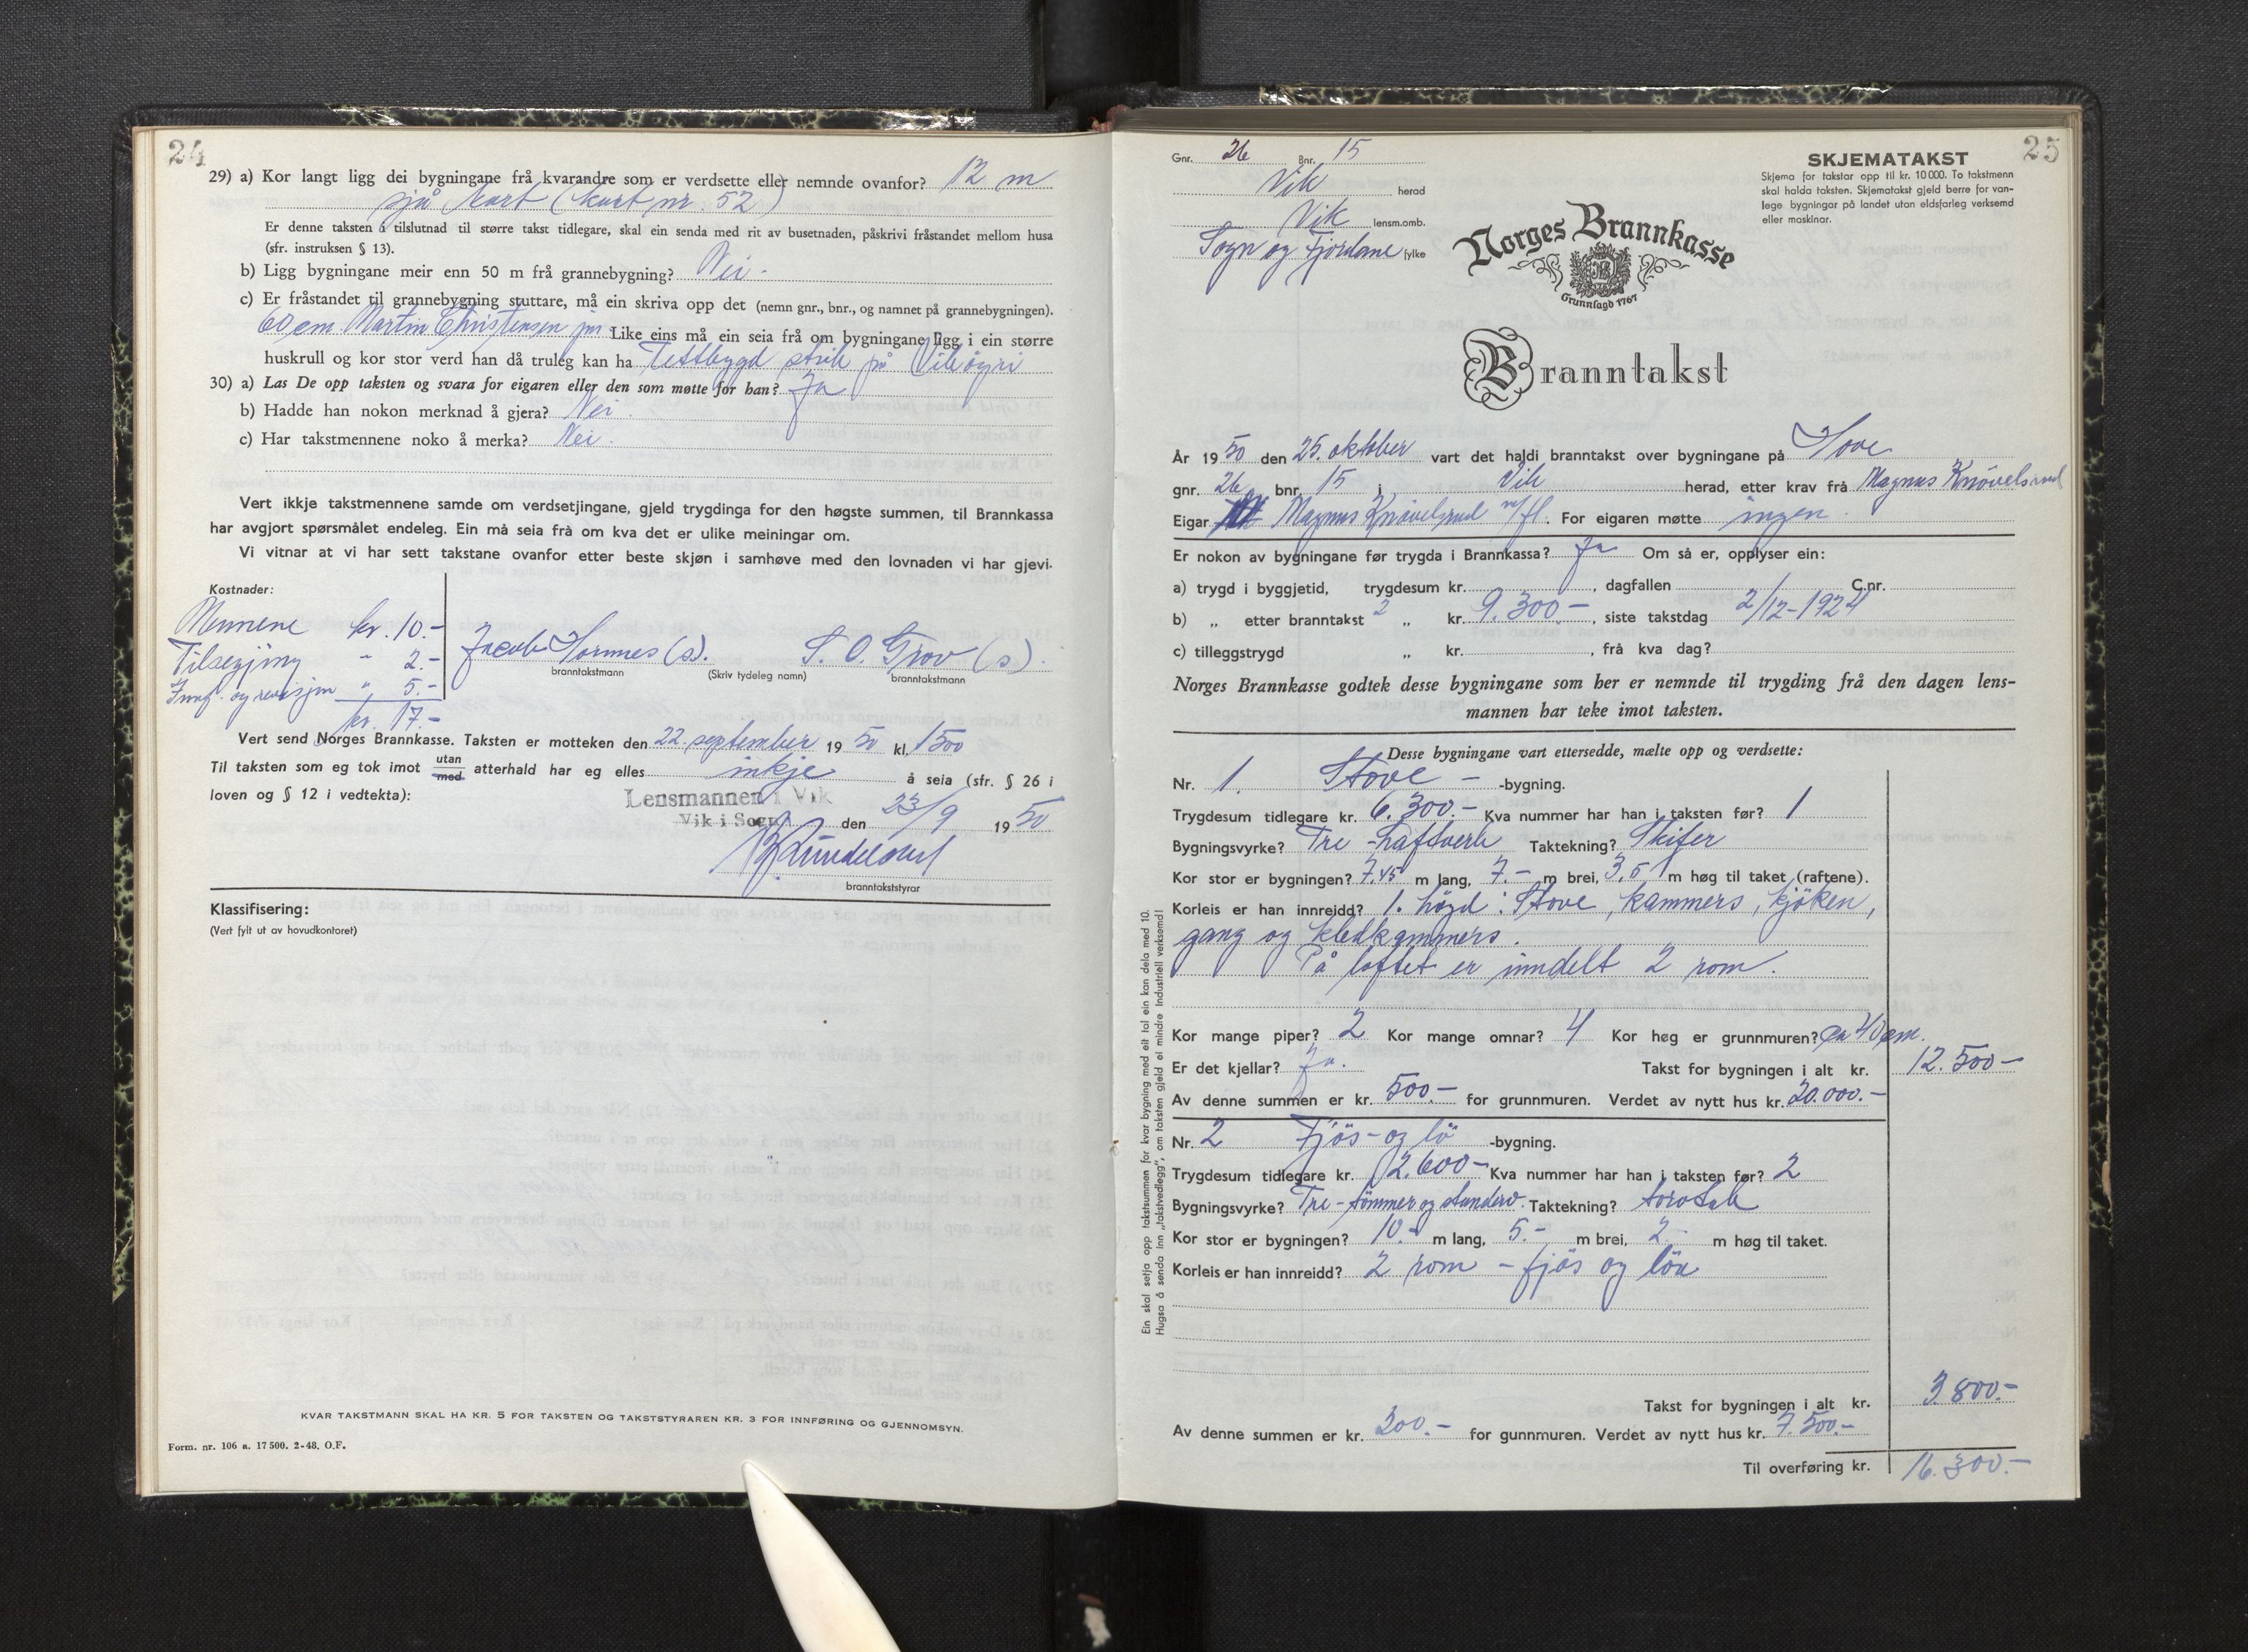 24
29) a) Kor langt ligg dei bygningane frå kvarandre som er verdsette eller nemnde ovanfor? 12 m
sjå kart (kart nr. 52)
Er denne taksten tilslutnad til større takst tidlegare, skal ein senda med rit av busetnaden, påskrivi fråstandet mellom husa
(sfr. instruksen § 13).
b) Ligg bygningane meir enn 50 m frå grannebygning? Nei.
c) Er fråstandet til grannebygning stuttare, må ein skriva opp det (nemn gnr., bnr., og namnet på grannebygningen).
60 cm Martin Christensen jnr Like eins må ein seia frå om bygningane ligg i ein større
huskrull og kor stor verd han då truleg kan ha Tettbygd strok på Vikøyri
30) a) Las De opp taksten og svara for eigaren eller den som møtte for han? Ja
b) Hadde han nokon merknad å gjera? Nei.
c) Har takstmennene noko å merka? Nei.
Vert ikkje takstmennene samde om verdsetjingane, gjeld trygdinga for den høgste summen, til Brannkassa
har avgjort spørsmålet endeleg. Ein må seia frå om kva det er ulike meiningar om.
Vi vitnar at vi har sett takstane ovanfor etter beste skjøn i samhøve med den lovnaden vi har gjevi.
Kostnader:
Mennene kr. 10.-
Tilsegjing " 2.-
Innf. og revisjon " 5.-
kr. 17.-
Jacob Hormes (s). S. O. Grov (s).
branntakstmann (Skriv tydeleg namn) branntakstmann
Vert send Norges Brannkasse. Taksten er motteken den 22. september 1950 kl. 1500
Til taksten som eg tok imot utan/med atterhald har eg elles inkje å seia (sfr. § 26 i
loven og § 12 i vedtekta):
Lensmannen i Vik
Vik i Sogn den 23/9 1950
branntakststyrar
Klassifisering:
(Vert fylt ut av hovudkontoret)
KVAR TAKSTMANN SKAL HA KR. 5 FOR TAKSTEN OG TAKSTSTYRAREN KR. 3 FOR INNFØRING OG GJENNOMSYN.
Form. nr. 106 a. 17 500. 2-48. O.F.
25
Gnr. 26 Bnr. 15
Vik herad
Vik lensm.omb.
Sogn og Fjordane fylke
SKJEMATAKST
Skjema for takstar opp til kr. 10 000. To takstmenn
skal halda taksten. Skjematakst gjeld berre for van-
lege bygningar på landet utan eldsfarleg verksemd
eller maskinar.
Norges Brannkasse
Grunnlagd 1767
Branntakst
År 1950 den 25. oktober vart det haldi branntakst over bygningane på Hove
gnr. 26 bnr. 15 i Vik herad, etter krav frå Magnus Knövelsrud
Eigar Magnus Knövelsrud m/fl. For eigaren møtte ingen.
Er nokon av bygningane før trygda i Brannkassa? Ja Om så er, opplyser ein:
a) trygd i byggjetid, trygdesum kr. , dagfallen C.nr.
b) „ etter branntakst 2 „ kr. 9.300.- , siste takstdag 2/12-1924
c) tilleggstrygd „ kr. , frå kva dag?
Norges Brannkasse godtek desse bygningane som her er nemnde til trygding frå den dagen lens-
mannen har teke imot taksten.
Desse bygningane vart ettersedde, mælte opp og verdsette:
Nr. 1. Stove - -bygning.
Trygdesum tidlegare kr. 6.300.- Kva nummer har han i taksten før? 1
Bygningsvyrke? Tre - lafteverk Taktekning? Skifer
Kor stor er bygningen? 7,45 m lang, 7.- m brei, 3,5 m høg til taket (raftene).
Korleis er han innreidd? 1. høgd: Stove, kammers, kjøken,
gang og kledkammers.
På loftet er inndelt 2 rom.
Kor mange piper? 2 Kor mange omnar? 4 Kor høg er grunnmuren? ca 40 cm.
Er det kjellar? Ja. Takst for bygningen i alt kr. 12.500.-
Av denne summen er kr. 500.- for grunnmuren. Verdet av nytt hus kr. 20.000.-
Nr. 2 Fjös- og lö -bygning.
Trygdesum tidlegare kr. 2.600.- Kva nummer har han i taksten før? 2
Bygningsvyrke? Tre - tömmer og standerv. Taktekning? torvtak
Kor stor er bygningen? 10.- m lang, 5.- m brei, 2.- m høg til taket.
Korleis er han innreidd? 2 rom - fjös og löa
Takst for bygningen i alt kr. 3.800.-
Av denne summen er kr. 200.- for gunnmuren. Verdet av nytt hus kr. 7.500.-
Til overføring kr. 16.300.-
Ein skal setja opp takstsummen for kvar bygning med eit tal ein kan dela med 10.
Hugsa å senda inn „takstvedlegg”, om taksten gjeld ei mindre industriell verksemd!